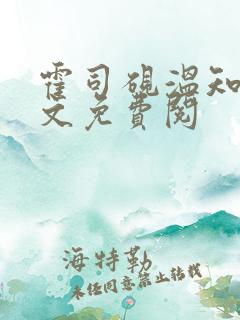 霍司砚温知
文免费阅
海特勒
未经同意禁止转载